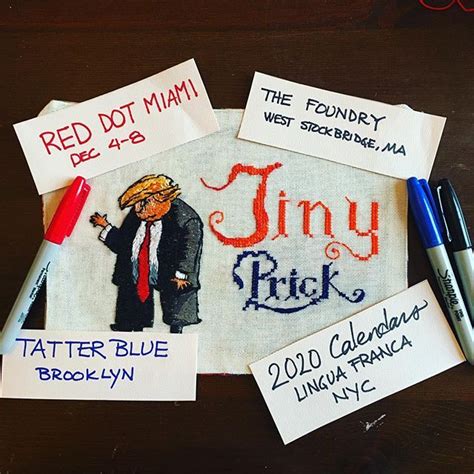 RED DOT MIAMI
DEC 4-8
THE FOUNDRY
WEST STOCKBRIDGE, MA
Tiny
Prick
TATTER BLUE
BROOKLYN
2020 Calendars
LINGUA FRANCA
NYC
Sharpie